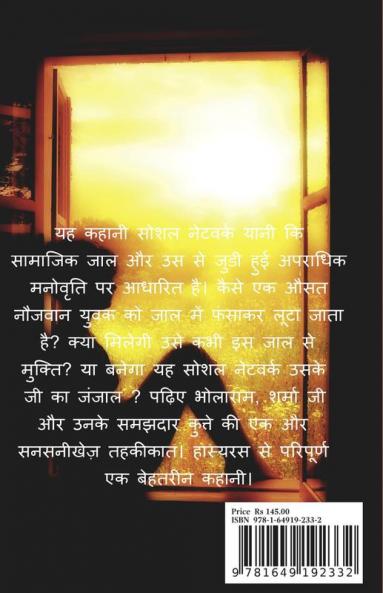 यह कहानी सोशल नेटवर्क यानी कि
सामाजिक जाल और उस से जुडी हुई अपराधिक
मनोवृति पर आधारित है। कैसे एक औसत
नौजवान युवक को जाल में फसाकर लूटा जाता
है? क्या मिलेगी उसे कभी इस जाल से
मुक्ति? या बनेगा यह सोशल नेटवर्क उसके
जी का जंजाल ? पढ़िए भोलाराम, शर्मा जी
और उनके समझदार कुत्ते की एक और
सनसनीखेज़ तहकीकात। हास्यरस से परिपूर्ण
एक बेहतरीन कहानी।
Price Rs 145.00
ISBN 978-1-64919-233-2
9 781649 192332